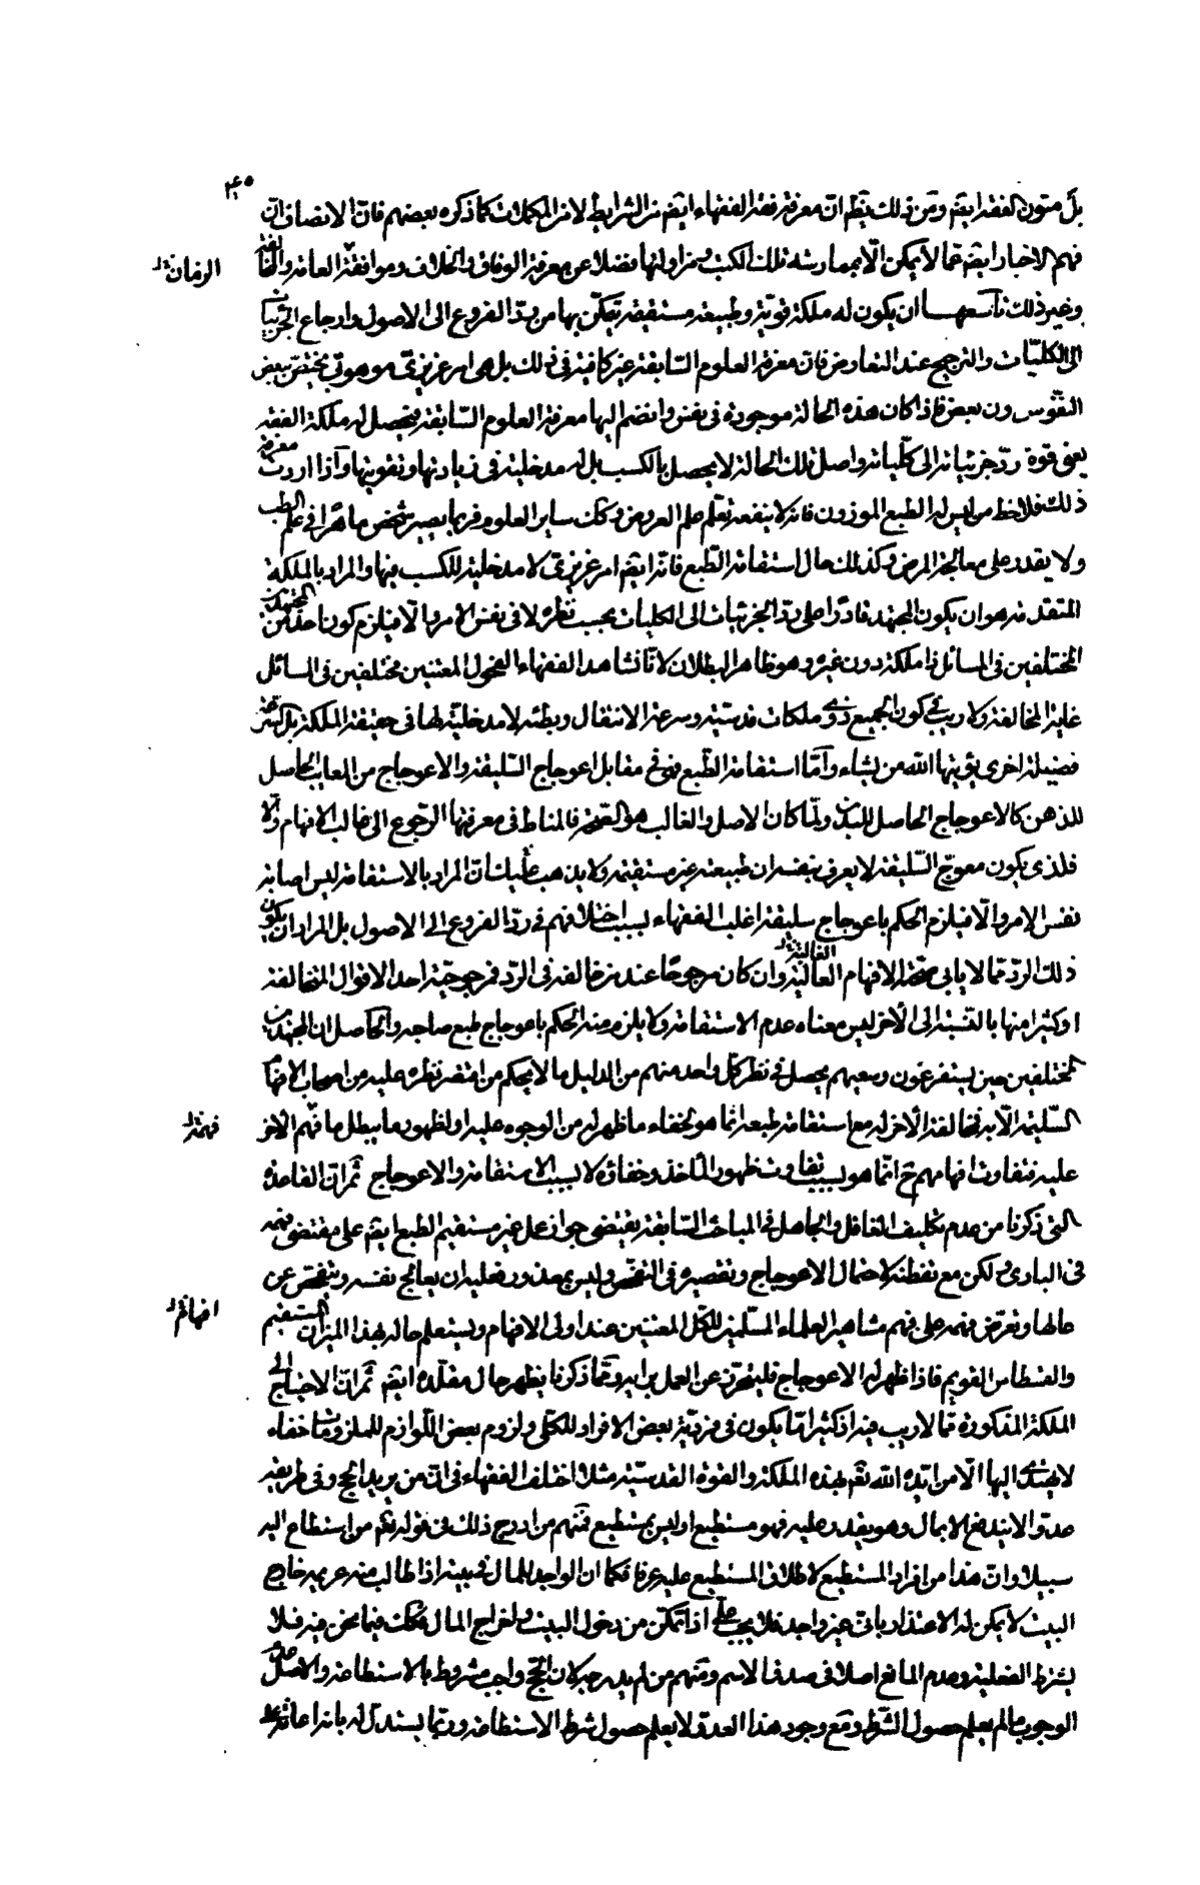 بل متون الفقه ايضم ومن ذلك يظهر ان معرفة فقه الفقهاء ايضم من الشرايط لا من المكملات كما ذكره بعضهم فان الانصاف ان
فهم الاخبار ايضم مما لا يمكن الا بممارسة تلك الكتب ومزاولتها فضلا عن معرفة الوفاق والخلاف وموافقة العامة والمخالفة
وغير ذلك تاسعها ان يكون له ملكة قوية وطبيعة مستقيمة يتمكن بها من رد الفروع الى الاصول وارجاع الجزئيات
الى الكليات والترجيح عند التعارض فان معرفة العلوم السابقة غير كافية في ذلك بل هي امر غريزي موهوبي يختص ببعض
النفوس دون بعض فاذا كان هذه الحالة موجودة في نفس وانضم اليها معرفة العلوم السابقة فيحصل له ملكة الفقه
يعني قوة رد جزئياته الى كلياته واصل تلك الحالة لا يحصل بالكسب بل له مدخلية في زيادتها وتقويتها واذا اردت معرفة
ذلك فلاحظ من ليس له الطبع الموزون فانه لا ينفعه تعلم علم العروض وكك ساير العلوم فربما يصير شخص ماهرا في علم الطب
ولا يقدر على معالجة المرض وكذلك حال استقامة الطبع فانه ايضم امر غريزي لا مدخلية للكسب فيها والمراد بالملكة
المتقدمة هو ان يكون المجتهد قادرا على رد الجزئيات الى الكليات بحسب نظره لا في نفس الامر والا فيلزم كون احد من المجتهدين
المختلفين في المسائل ذا ملكة دون غيره وهو ظاهر البطلان لانا نشاهد الفقهاء الفحول المفتنين مختلفين في المسائل
غاية المخالفة ولا ريب في كون الجميع ذوي ملكات قدسية وسرعة الانتقال وبطئه لا مدخلية لها في حقيقة الملكة بل السرعة
فضيلة اخرى يؤتيها الله من يشاء واما استقامة الطبع فهو في مقابل اعوجاج السليقة والاعوجاج من العايب الحاصل
للذهن كالاعوجاج الحاصل للبدن ولما كان الاصل والغالب هو الصحة فالمناط في معرفتها الرجوع الى غالب الافهام والا
فلذى يكون معوج السليقة لا يعرف بنفسه ان طبيعته غير مستقيمة ولا يذهب عليك ان المراد بالاستقامة ليس اصابة
نفس الامر والا فيلزم الحكم باعوجاج سليقة اغلب الفقهاء بسبب اختلافهم في رد الفروع الى الاصول بل المراد ان يكون
ذلك الرد مما لا يابى صحته الافهام العالية الغالبة وان كان مرجوحا عند من خالفه في الرد فمرجوحية احد الاقوال المتخالفة
او كثير منها بالنسبة الى الاخر ليس معناه عدم الاستقامة ولا يلزم منه الحكم باعوجاج طبع صاحبه والحاصل ان المجتهدين
المختلفين حين يستفرغون وسعهم يحصل في نظر كل واحد منهم من الدليل ما لا يحكم من اقتصر نظره عليه من اصحاب الافهام
السليمة الا به فمخالفة الاخر له مع استقامة طبعه انما هو لخفاء ما ظهر له من الوجوه عليه او لظهور ما يبطل ما فهم الاخر
عليه فتفاوت افهامهم ح انما هو بسبب تفاوت ظهور المأخذ وخفائه لا بسبب الاستقامة والاعوجاج ثم ان القاعدة
التي ذكرنا من عدم تكليف الغافل والجاهل في المباحث السابقة يقتضي جواز عمل غير مستقيم الطبع ايضم على مقتضى فهمه
في البادي ولكن مع تفطنه لاحتمال الاعوجاج وتقصيره في التفحص وليس بمعذور فعليه ان يعالج نفسه ويتفحص عن
حالها وتعرض فهمه على فهم مشاهير العلماء المسلمين للكل المفتنين عند اولى الافهام ويستعلم حاله بهذا الميزان المستقيم
والقسطاس القويم فاذا ظهر له الاعوجاج فليتحرز عن العمل برايه ومما ذكرنا يظهر حال مقلده ايضم ثم ان الاحتياج الى
الملكة المذكورة مما لا ريب فيه اذ كثيرا ما يكون في فردية بعض الافراد للكلي ولزوم بعض اللوازم للملزومات خفاء
لا يهتدي اليها الا من ايده الله تعم بهذه الملكة والقوة القدسية مثلا اختلف الفقهاء في ان من يريد الحج وفي طريقه
عدو لا يندفع الا بمال وهو يقدر عليه فهو مستطيع او ليس بمستطيع فمنهم من ادرج ذلك في قوله تعم من استطاع اليه
سبيلا وان هذا من افراد المستطيع لاطلاق المستطيع عليه عرفا فكما ان الواجد للمال في بيته اذا طالب منه غريمه خارج
البيت لا يمكن له الاعتذار باني غير واجد فلا يجب علي اذا تمكن من دخول البيت واخراج المال فكك فيما نحن فيه فلا
يشترط الفعلية وعدم المانع اصلا في صدق الاسم ومنهم من لم يدرجه لان الحج واجب مشروط بالاستطاعة والاصل عدم
الوجوب ما لم يعلم حصول الشرط ومع وجود هذا العدو لا يعلم حصول شرط الاستطاعة وربما يستدل له بانه اعانة على